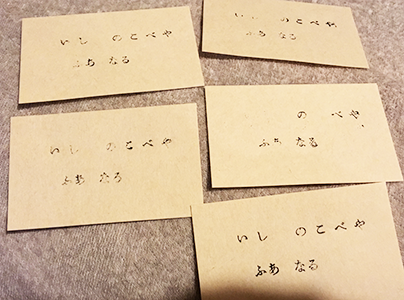 いし のこべや
ふあ なる
いし のこべや
ふあ なる
いし のこべや
ふあ なる
の べや
ふ なる
いし のこべや
ふあ なる